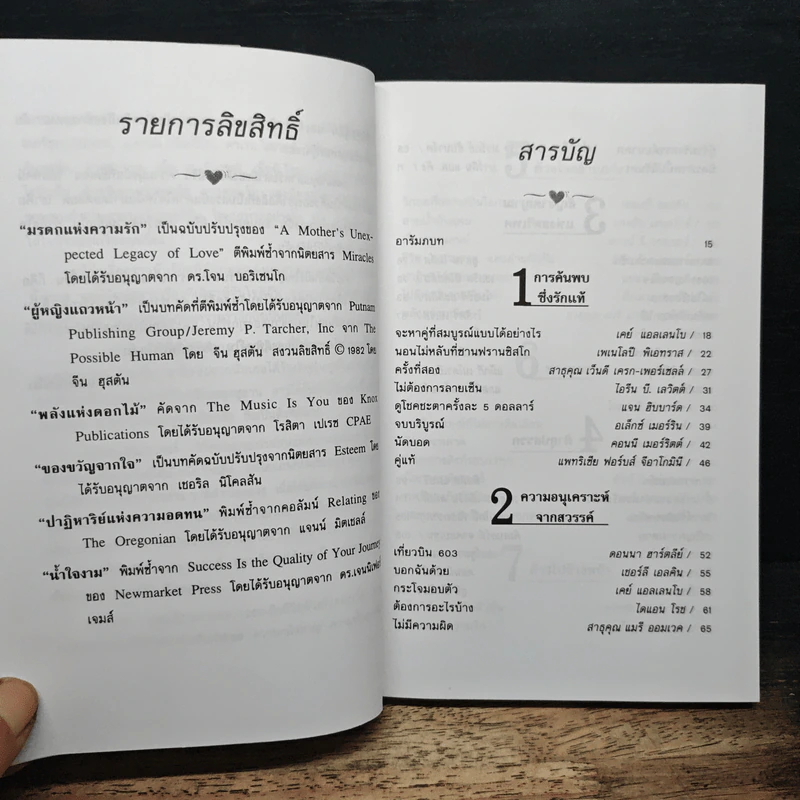 รายการลิขสิทธิ์
“มรดกแห่งความรัก” เป็นฉบับปรับปรุงของ “A Mother's Unex-
pected Legacy of Love” ตีพิมพ์ซ้ำจากนิตยสาร Miracles
โดยได้รับอนุญาตจาก ดร.โจน บอริเซนโก
“ผู้หญิงแถวหน้า” เป็นบทคัดที่ตีพิมพ์ซ้ำโดยได้รับอนุญาตจาก Putnam
Publishing Group/Jeremy P. Tarcher, Inc จาก The
Possible Human โดย จีน ฮุสตัน สงวนลิขสิทธิ์ © 1982 โดย
จีน ฮุสตัน
“พลังแห่งดอกไม้” คัดจาก The Music Is You ของ Knox
Publications โดยได้รับอนุญาตจาก โรสิตา เปเรซ CPAE
“ของขวัญจากใจ” เป็นบทคัดฉบับปรับปรุงจากนิตยสาร Esteem โดย
ได้รับอนุญาตจาก เชอริล นิโคลสัน
“ปาฏิหาริย์แห่งความอดทน” พิมพ์ซ้ำจากคอลัมน์ Relating ของ
The Oregonian โดยได้รับอนุญาตจาก แจนน์ มิตเชลล์
“น้ำใจงาม” พิมพ์ซ้ำจาก Success Is the Quality of Your Journey
ของ Newmarket Press โดยได้รับอนุญาตจาก ดร.เจนนิเฟอร์
เจมส์
สารบัญ
อารัมภบท 15
1 การค้นพบ
ซึ่งรักแท้
จะหาคู่ที่สมบูรณ์แบบได้อย่างไร เคย์ แอลเลนโบ / 18
นอนไม่หลับที่ซานฟรานซิสโก เพเนโลปี พิเอทราส / 22
ครั้งที่สอง สาธุคุณ เว็นดี เครก-เพอร์เซลล์ / 27
ไม่ต้องการลายเซ็น ไอรีน บี. เลวิตต์ / 31
ดูโชคชะตาครั้งละ 5 ดอลลาร์ แจน ฮิบบาร์ด / 34
จบบริบูรณ์ อเล็กซ์ เมอร์ริน / 39
นัดบอด คอนนี เมอร์ริตต์ / 42
คู่แท้ แพทริเซีย ฟอร์บส์ จีอาโกมินี / 46
2 ความอนุเคราะห์
จากสวรรค์
เที่ยวบิน 603 ดอนนา ฮาร์ตลีย์ / 52
บอกฉันด้วย เชอร์ลี เอลคิน / 55
กระโจมอบตัว เคย์ แอลเลนโบ / 58
ต้องการอะไรบ้าง ไดแอน โรช / 61
ไม่มีความผิด สาธุคุณ แมรี ออมเวค / 65